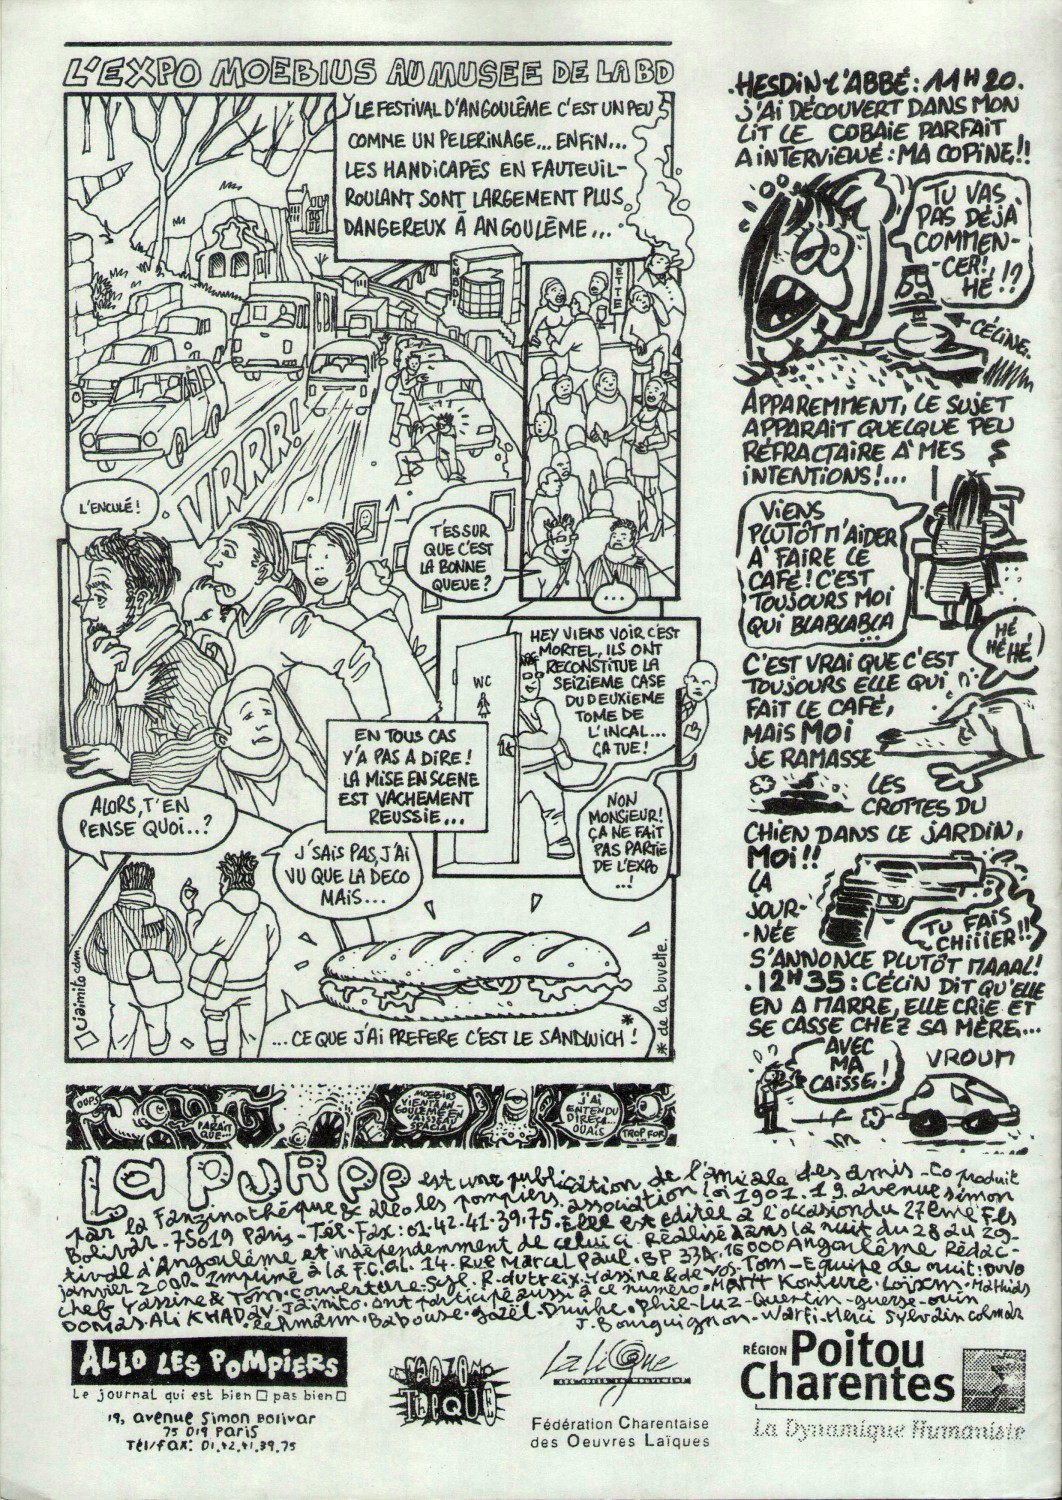 L'EXPO MOEBIUS AU MUSEE DE LA BD
LE FESTIVAL D'ANGOULÊME C'EST UN PEU
COMME UN PELERINAGE... ENFIN...
LES HANDICAPÉS EN FAUTEUIL-
ROULANT SONT LARGEMENT PLUS
DANGEREUX À ANGOULÊME...
VRRR!
L'ENCULÉ!
T'ES SUR
QUE C'EST
LA BONNE
QUEUE?
...
HEY VIENS VOIR C'EST
MORTEL, ILS ONT
RECONSTITUE LA
SEIZIEME CASE
DU DEUXIEME
TOME DE
L'INCAL...
ÇA TUE!
WC
EN TOUS CAS
Y'A PAS A DIRE!
LA MISE EN SCENE
EST VACHEMENT
REUSSIE...
NON
MONSIEUR!
ÇA NE FAIT
PAS PARTIE
DE L'EXPO
..!
ALORS, T'EN
PENSE QUOI..?
J'SAIS PAS, J'AI
VU QUE LA DECO
MAIS...
...CE QUE J'AI PREFERE C'EST LE SANDWICH! *
* de la buvette.
jaimito
OOPS
PARAIT
QUE...
MOEBIUS
VIENT À AN-
GOULÊME EN
VAISSEAU
SPACIAL
J'AI
ENTENDU
DIRE ÇA...
OUAIS
TROP FORT
.HESDIN-L'ABBÉ: 11H20.
J'AI DÉCOUVERT DANS MON
LIT LE COBAIE PARFAIT
A INTERVIEWÉ: MA COPINE!!
TU VAS
PAS DÉJÀ
COMMEN-
-CER!
HÉ!?
CÉLINE.
APPAREMMENT, LE SUJET
APPARAIT QUELQUE PEU
RÉFRACTAIRE À MES
INTENTIONS!...
VIENS
PLUTÔT M'AIDER
A' FAIRE LE
CAFÉ! C'EST
TOUJOURS MOI
QUI BLABLABLA
...
HÉ
HÉ HÉ!
C'EST VRAI QUE C'EST
TOUJOURS ELLE QUI
FAIT LE CAFÉ,
MAIS MOI
JE RAMASSE
LES
CROTTES DU
CHIEN DANS LE JARDIN,
MOI!!
LA
JOUR-
-NÉE
TU FAIS
CHIIIER!!
S'ANNONCE PLUTÔT MAAAL!
.12H35: CÉLIN DIT QU'ELLE
EN A MARRE, ELLE CRIE ET
SE CASSE CHEZ SA MÈRE...
AVEC
MA
CAISSE!
VROUM
La PUREE est une publication de l'amicale des amis - Co produit
par la Fanzinothéque & allo les pompiers. association loi 1901. 19. avenue simon
Bolivar - 75019 Paris - Tél-Fax: 01.42.41.39.75. Elle est éditée à l'occasion du 27ème Fes
tival d'Angoulême et indépendemment de celui ci. Réalisé dans la nuit du 28 au 29-
janvier 2000. Imprimé à la F.C.O.L. 14. Rue Marcel Paul. BP 334. 16000 Angoulême Rédac-
chefs Yassine & Tom. couverture. R. dutreix. Yassine & de vos. Tom - Equipe de nuit: Duvo
Domas. Ali KHADAV. Jaimito. ont participé aussi à ce numéro. Matt Konture. Mathias
Lehmann. Babouse. gazël. Phil. Luz - Quentin - guerse. ouin
J. Bourguignon. Warfi. Merci Sylvain colmar
ALLO LES POMPIERS
Le journal qui est bien □ pas bien □
19, avenue Simon Bolivar
75 019 Paris
Tél/fax: 01.42.41.39.75
FANZINO
THÈQUE
La Ligue
Fédération Charentaise
des Oeuvres Laïques
RÉGION Poitou
Charentes
La Dynamique Humaniste